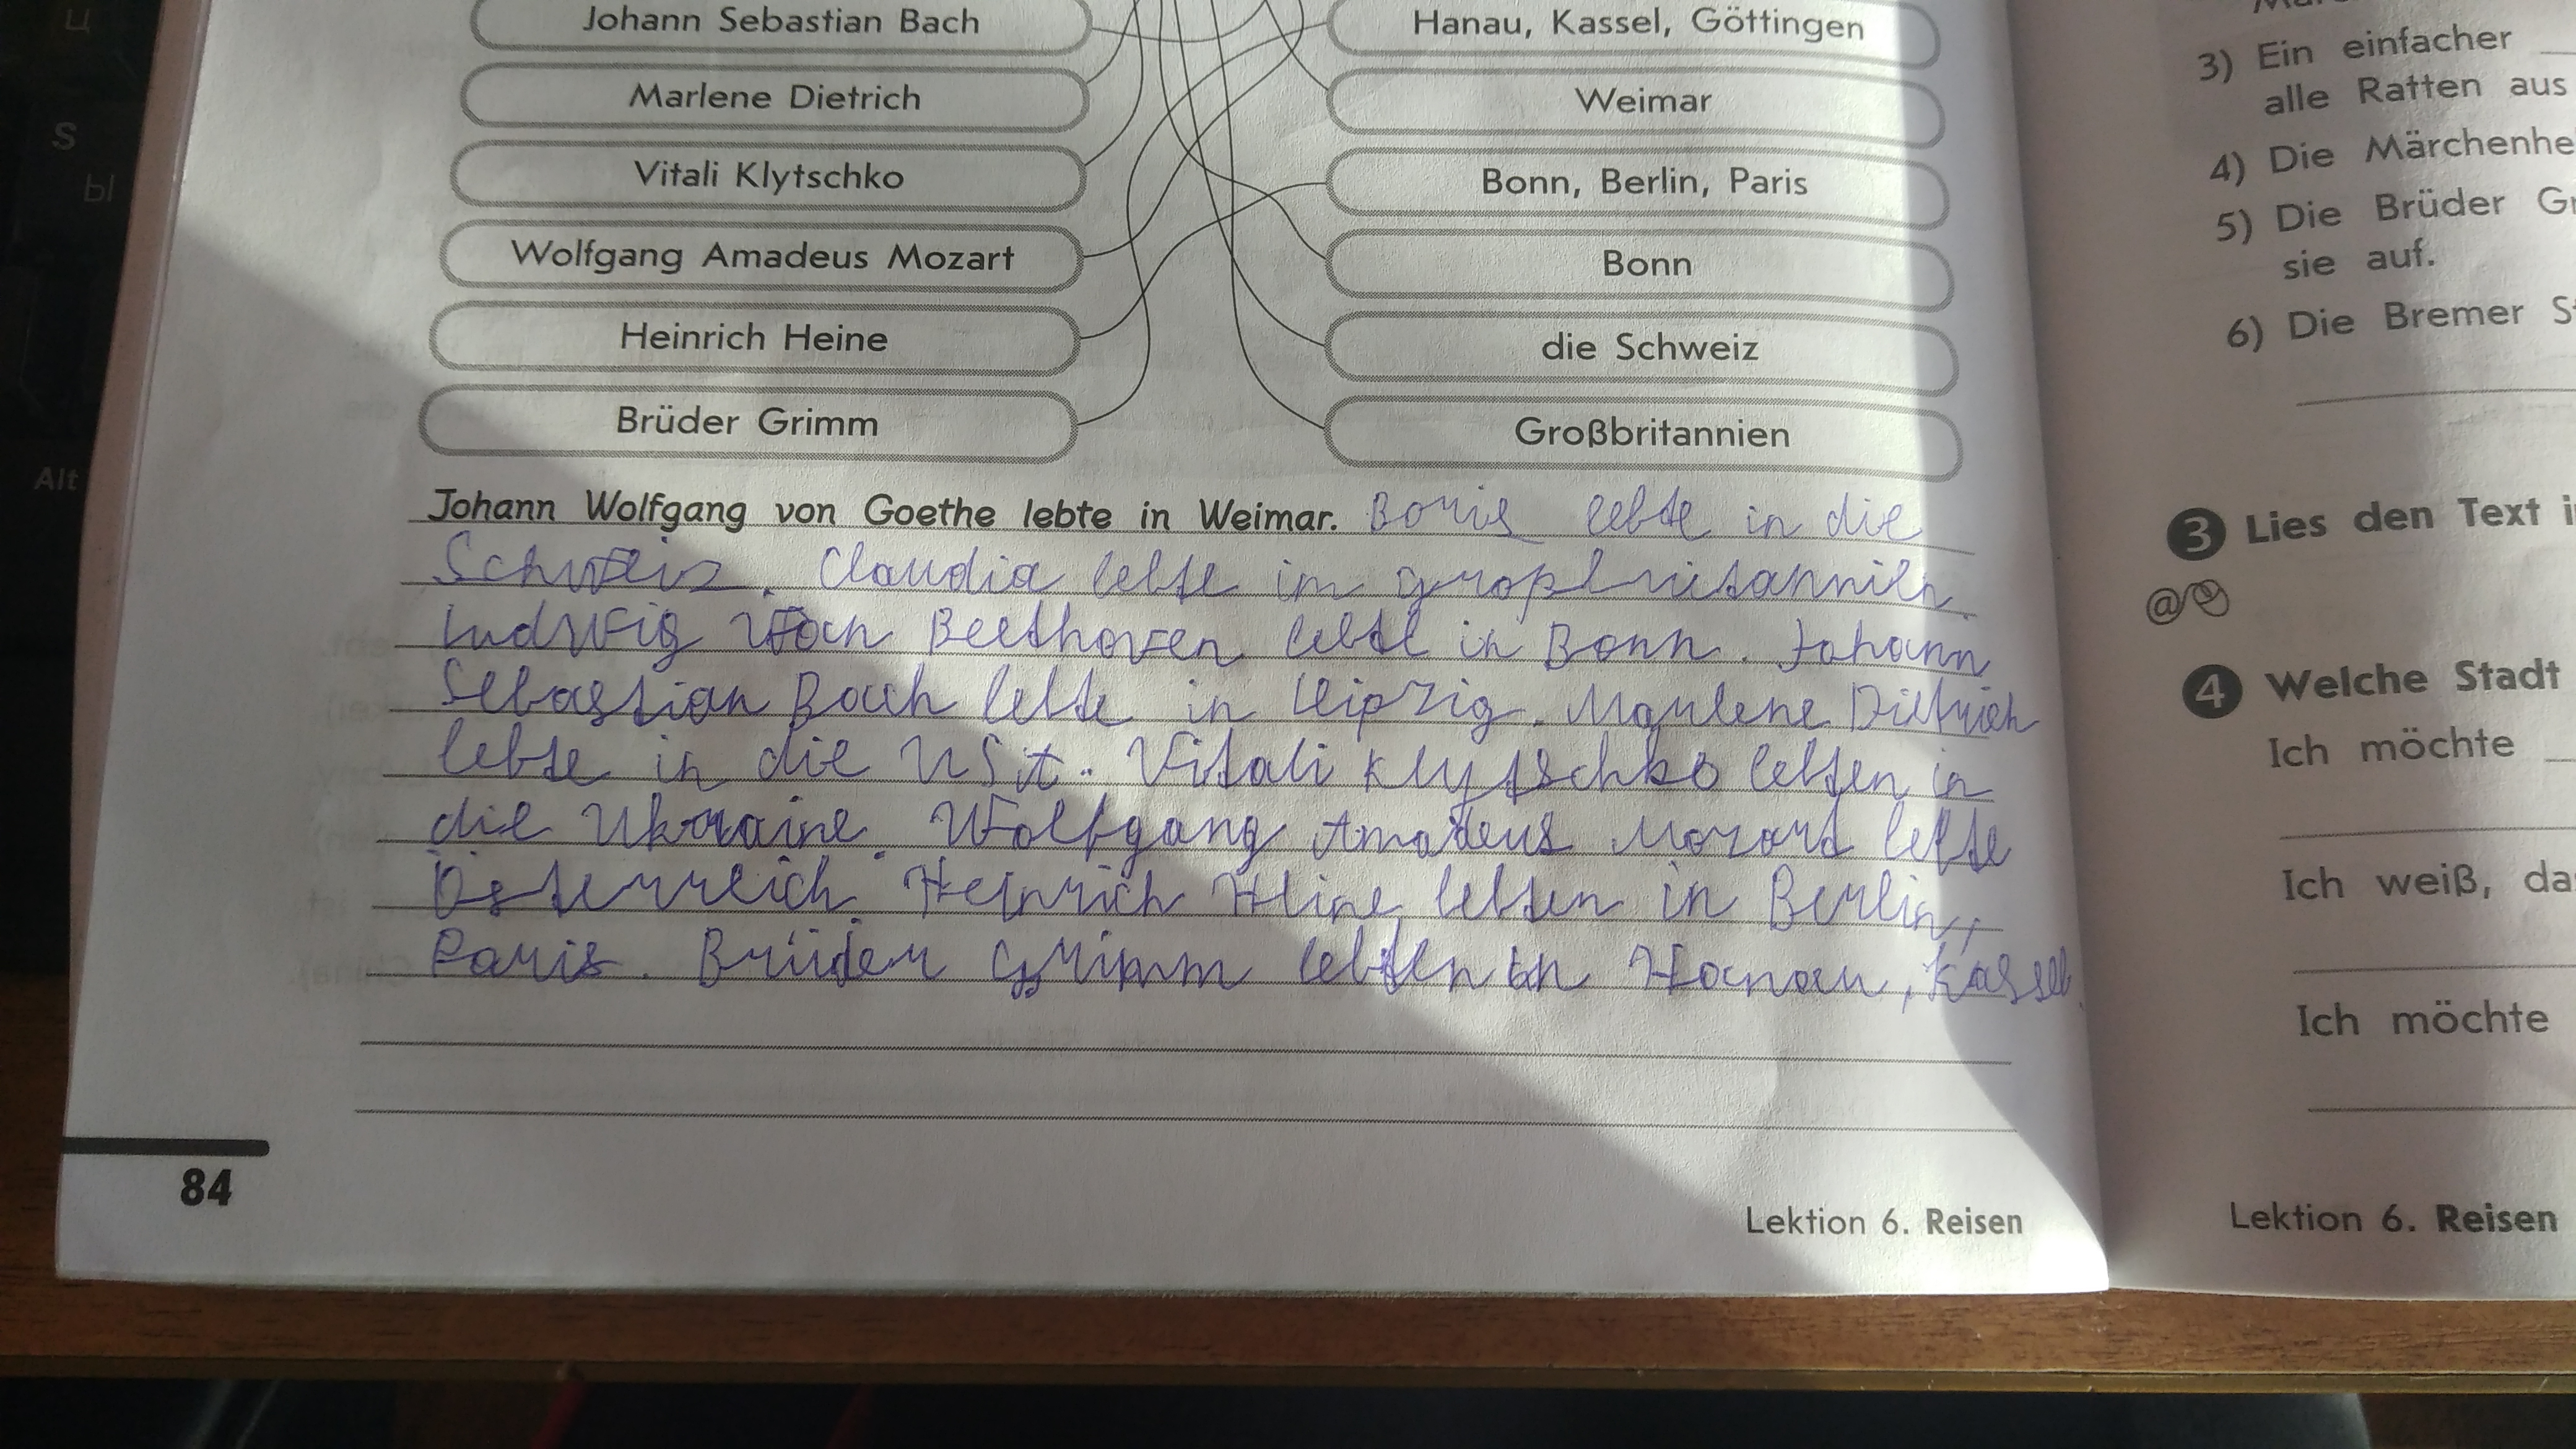 Ц
S
Ы
Alt
Johann Sebastian Bach
Hanau, Kassel, Göttingen
Marlene Dietrich
Weimar
Vitali Klytschko
Bonn, Berlin, Paris
Wolfgang Amadeus Mozart
Bonn
Heinrich Heine
die Schweiz
Brüder Grimm
Großbritannien
Johann Wolfgang von Goethe lebte in Weimar. Boris lebte in die
Schweiz. Claudia lebte im großbritannien.
Ludwig von Beethoven lebte in Bonn. Johann
Sebastian Bach lebte in Leipzig. Marlene Dietrich
lebte in die USA. Vitali Klytschko lebten in
die Ukraine. Wolfgang Amadeus Mozart lebte
Österreich. Heinrich Heine lebten in Berlin,
Paris. Brüder Grimm lebten in Hanau, Kassel.
84
Lektion 6. Reisen
3) Ein einfacher
alle Ratten aus
4) Die Märchenhe
5) Die Brüder Gr
sie auf.
6) Die Bremer S
3 Lies den Text i
@
4 Welche Stadt
Ich möchte
Ich weiß, da
Ich möchte
Lektion 6. Reisen